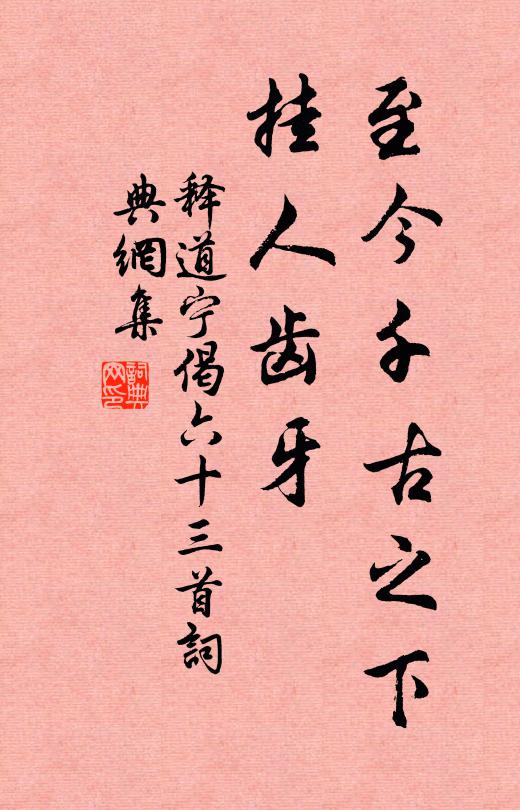 至今千古之下
挂人齿牙
释道宁偈六十三首詞
典網集
詞典網印